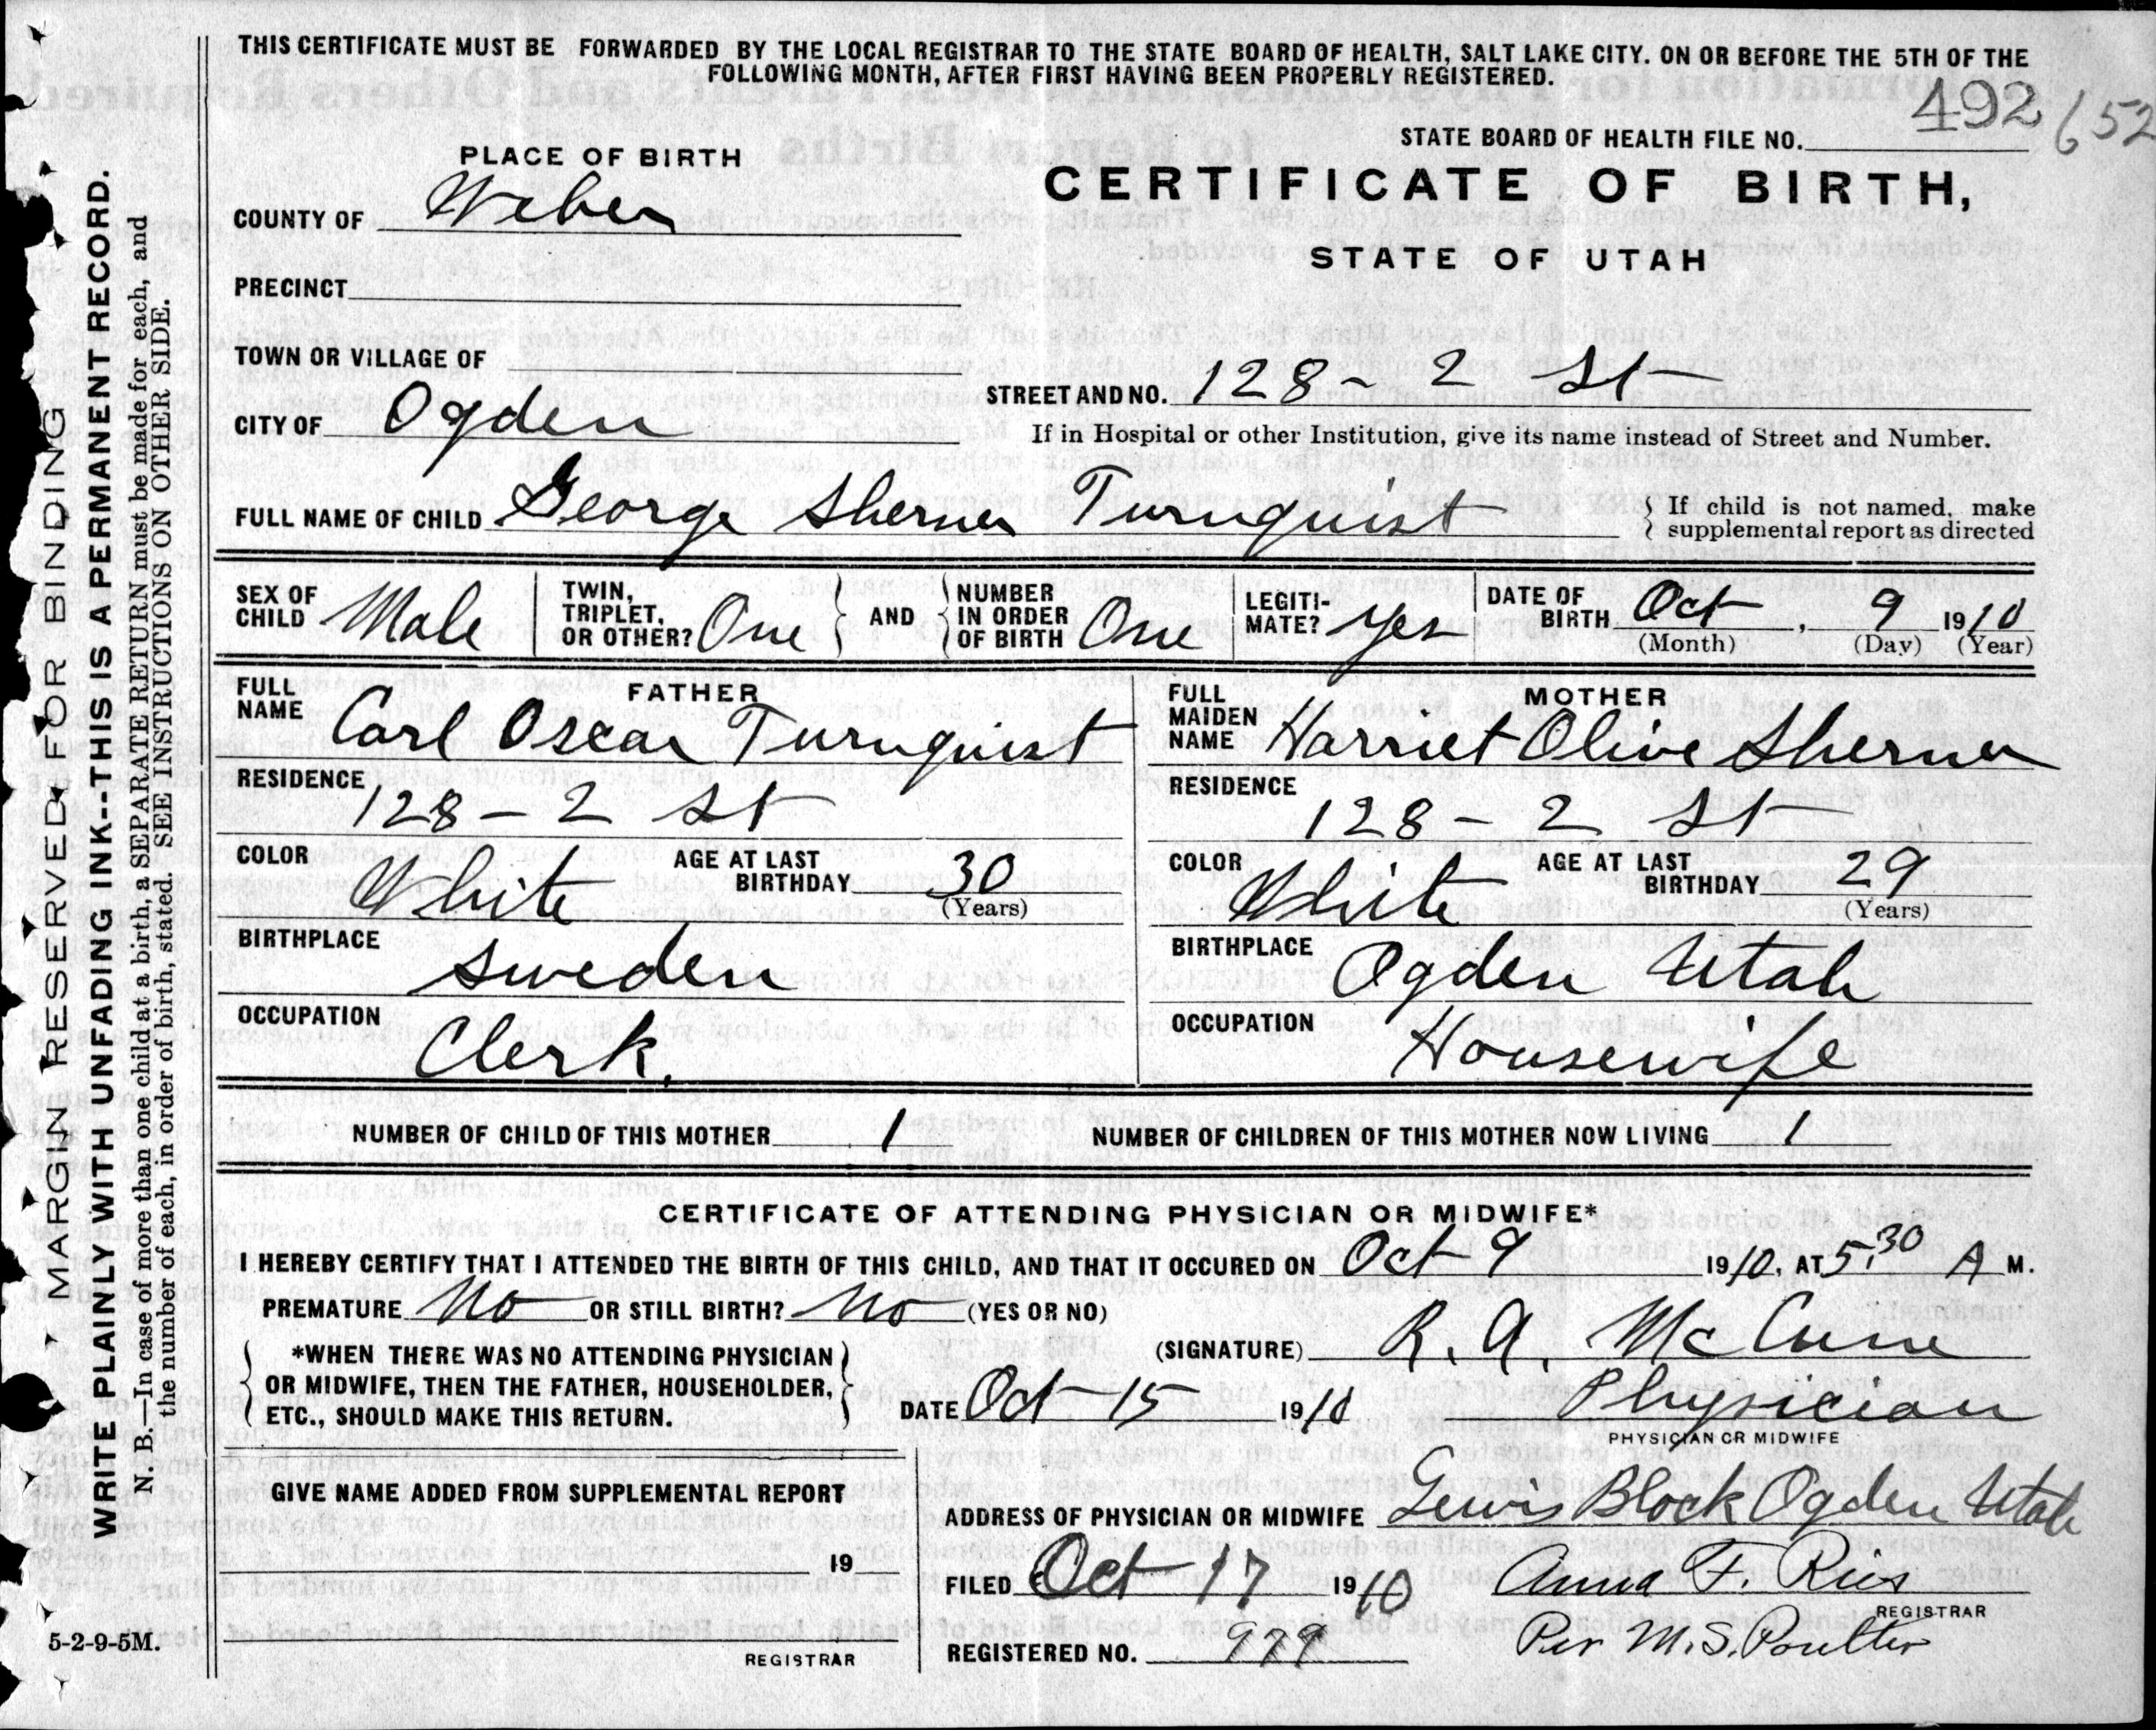 THIS CERTIFICATE MUST BE FORWARDED BY THE LOCAL REGISTRAR TO THE STATE BOARD OF HEALTH, SALT LAKE CITY. ON OR BEFORE THE 5TH OF THE
FOLLOWING MONTH, AFTER FIRST HAVING BEEN PROPERLY REGISTERED.
492 652
STATE BOARD OF HEALTH FILE NO.
PLACE OF BIRTH
CERTIFICATE OF BIRTH,
COUNTY OF Weber
STATE OF UTAH
PRECINCT
TOWN OR VILLAGE OF
STREET AND NO. 128 - 2 St
CITY OF Ogden
If in Hospital or other Institution, give its name instead of Street and Number.
FULL NAME OF CHILD George Sherner Turnquist
If child is not named, make
supplemental report as directed
SEX OF
CHILD Male
TWIN,
TRIPLET,
OR OTHER? One
AND
NUMBER
IN ORDER
OF BIRTH One
LEGITI-
MATE? Yes
DATE OF
BIRTH Oct, 9 1910
(Month) (Day) (Year)
FATHER
FULL
NAME Carl Oscar Turnquist
RESIDENCE
128 - 2 St
COLOR
White
AGE AT LAST
BIRTHDAY 30
(Years)
BIRTHPLACE
Sweden
OCCUPATION
Clerk.
MOTHER
FULL
MAIDEN
NAME Harriet Olive Sherner
RESIDENCE
128 - 2 St
COLOR
White
AGE AT LAST
BIRTHDAY 29
(Years)
BIRTHPLACE
Ogden Utah
OCCUPATION
Housewife
NUMBER OF CHILD OF THIS MOTHER 1
NUMBER OF CHILDREN OF THIS MOTHER NOW LIVING 1
CERTIFICATE OF ATTENDING PHYSICIAN OR MIDWIFE*
I HEREBY CERTIFY THAT I ATTENDED THE BIRTH OF THIS CHILD, AND THAT IT OCCURED ON Oct 9 1910, AT 5:30 A M.
PREMATURE No OR STILL BIRTH? No (YES OR NO)
*WHEN THERE WAS NO ATTENDING PHYSICIAN
OR MIDWIFE, THEN THE FATHER, HOUSEHOLDER,
ETC., SHOULD MAKE THIS RETURN.
(SIGNATURE) R. A. McCune
DATE Oct 15 1910
Physician
PHYSICIAN OR MIDWIFE
GIVE NAME ADDED FROM SUPPLEMENTAL REPORT
19
REGISTRAR
ADDRESS OF PHYSICIAN OR MIDWIFE Lewis Block Ogden Utah
FILED Oct 17 1910
Anna F. Ries
REGISTRAR
Per M. S. Poulter
REGISTERED NO. 979
MARGIN RESERVED FOR BINDING
WRITE PLAINLY WITH UNFADING INK--THIS IS A PERMANENT RECORD.
N. B.—In case of more than one child at a birth, a SEPARATE RETURN must be made for each, and
the number of each, in order of birth, stated. SEE INSTRUCTIONS ON OTHER SIDE.
5-2-9-5M.